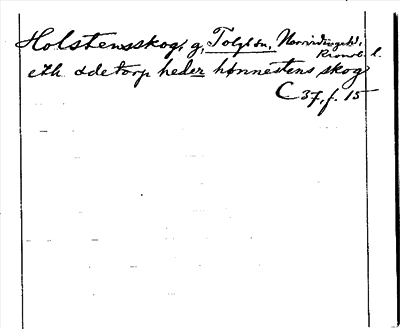 Holstensskog, g, Tolgs sn, Norrvidinge hd,
Kronob. l.
eth ødetorp heder hønnestens skog
C 37, f. 15